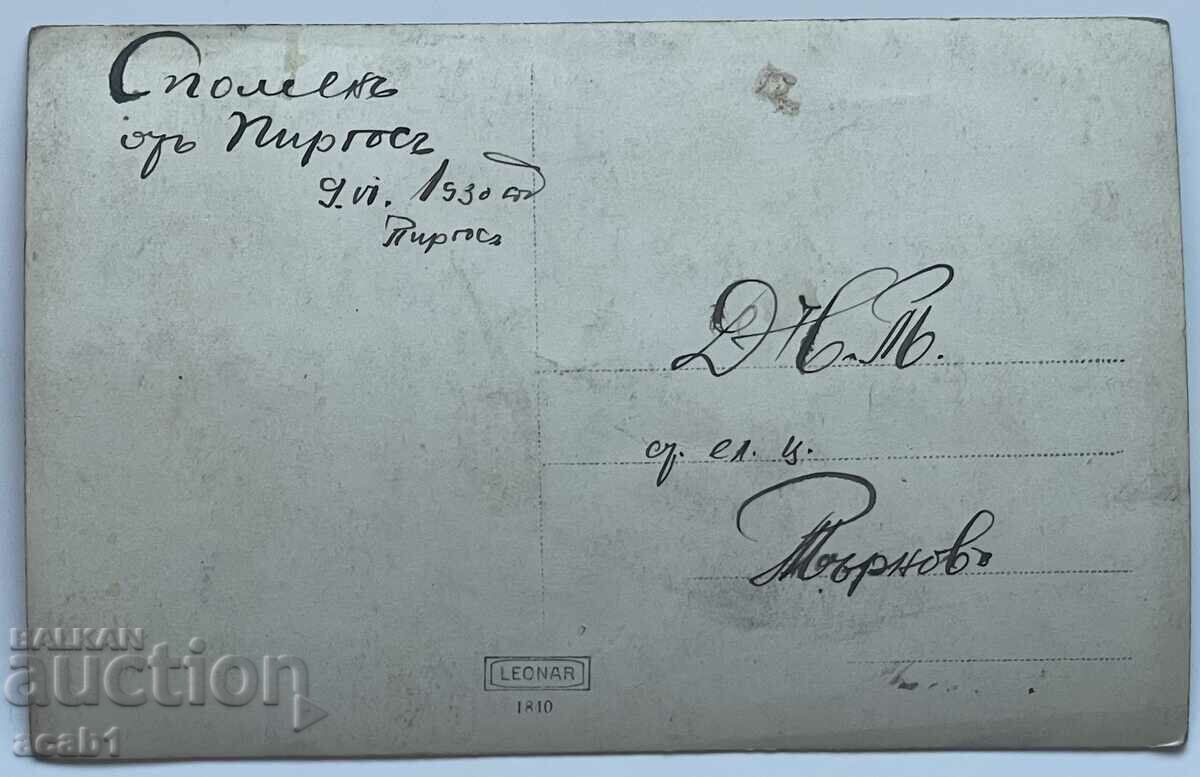 Споменъ
отъ Пиргосъ
9.VI. 1930 год
Пиргосъ
Д Н. М.
ст. ел. ц.
Търново
LEONAR
1810
BALKAN
auction
acab1